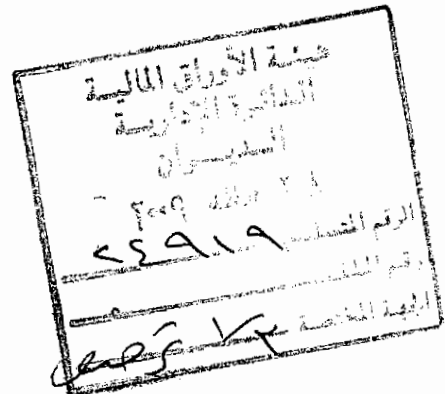 هيئة الأوراق المالية
الدائرة الإدارية
الديوان
٢٠٠٩
الرقم المتسلسل ٢٤٩١٩
رقم الملف
الجهة المختصة